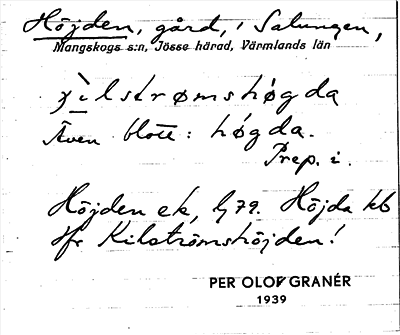 Höjden, gård, i Salungen,
Mangskogs s:n, Jösse härad, Värmlands län
χìlstrømshøgda
Även blott: høgda.
Prep. i.
Höjden ek, lj 79. Höjda kb
Jfr Kilströmshöjden!
PER OLOF GRANÉR
1939